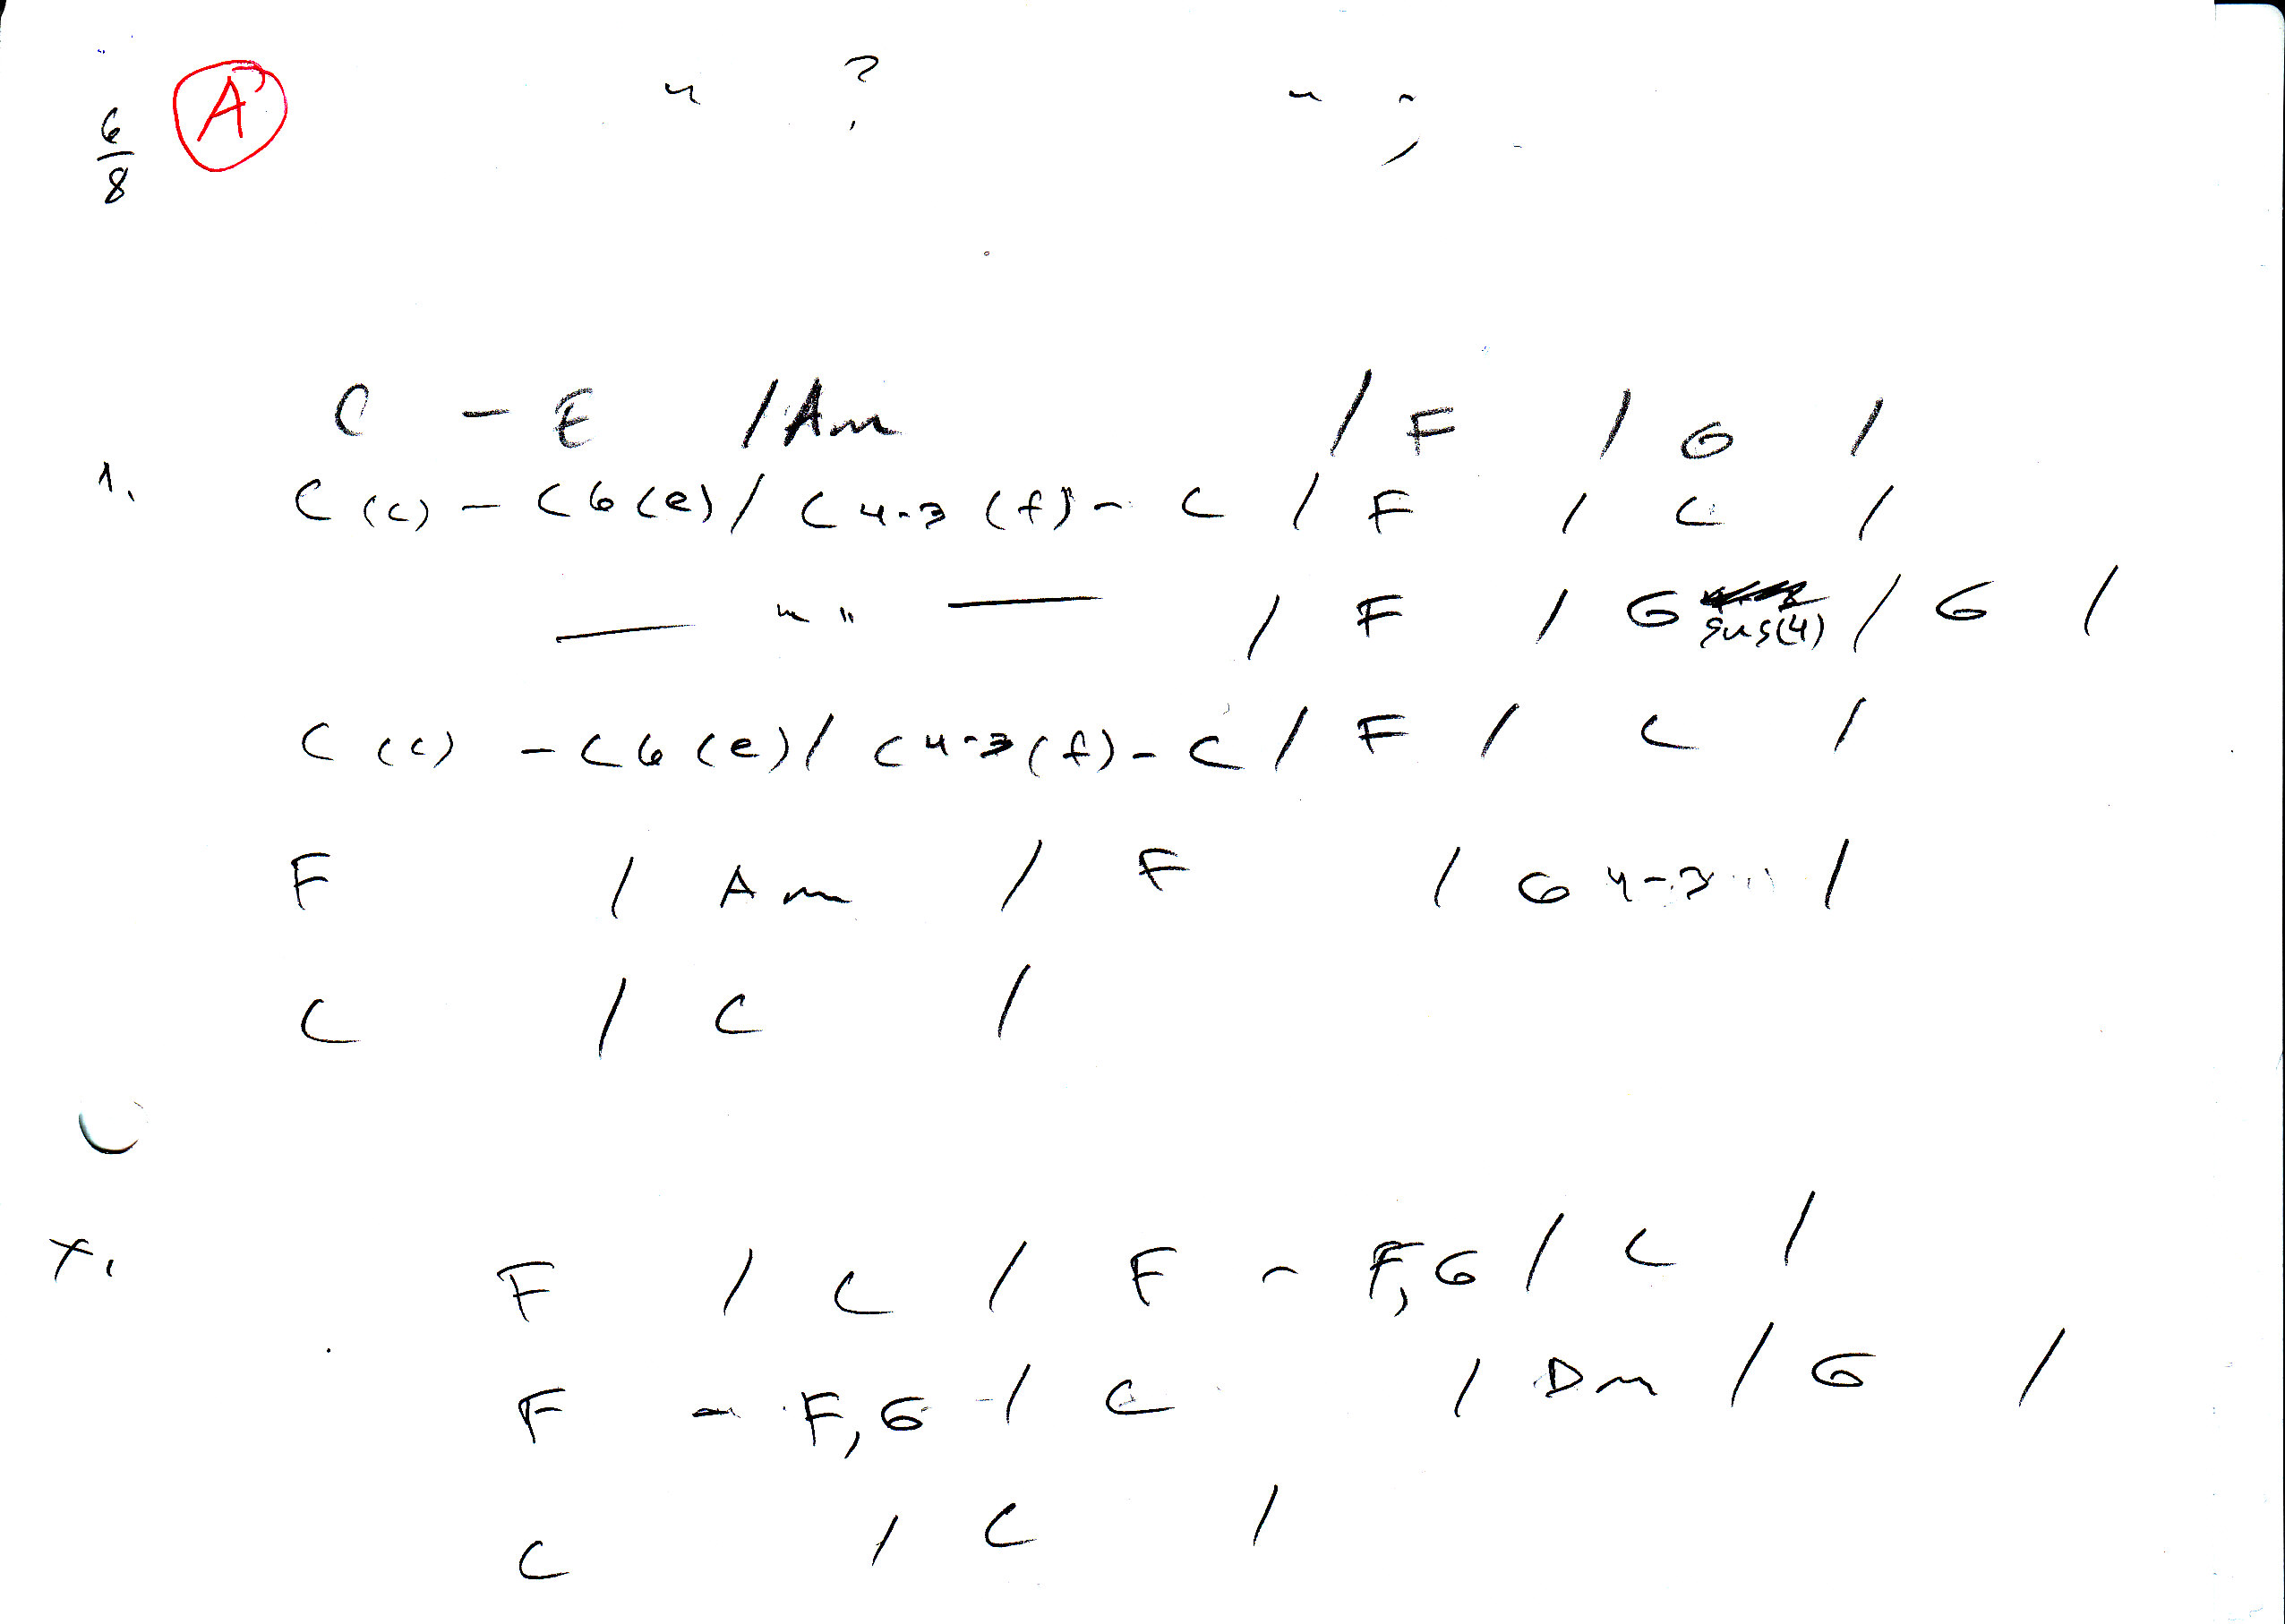 6/8 A
" ? " ;
C - E / Am / F / G /
1. C (c) - C6 (e) / C 4-3 (f) - C / F / C /
— " — / F / G sus(4) / G /
C (c) - C6 (e) / C 4-3 (f) - C / F / C /
F / Am / F / G 4-3 /
C / C /
x. F / C / F - F, G / C /
F - F, G - / C / Dm / G /
C / C /